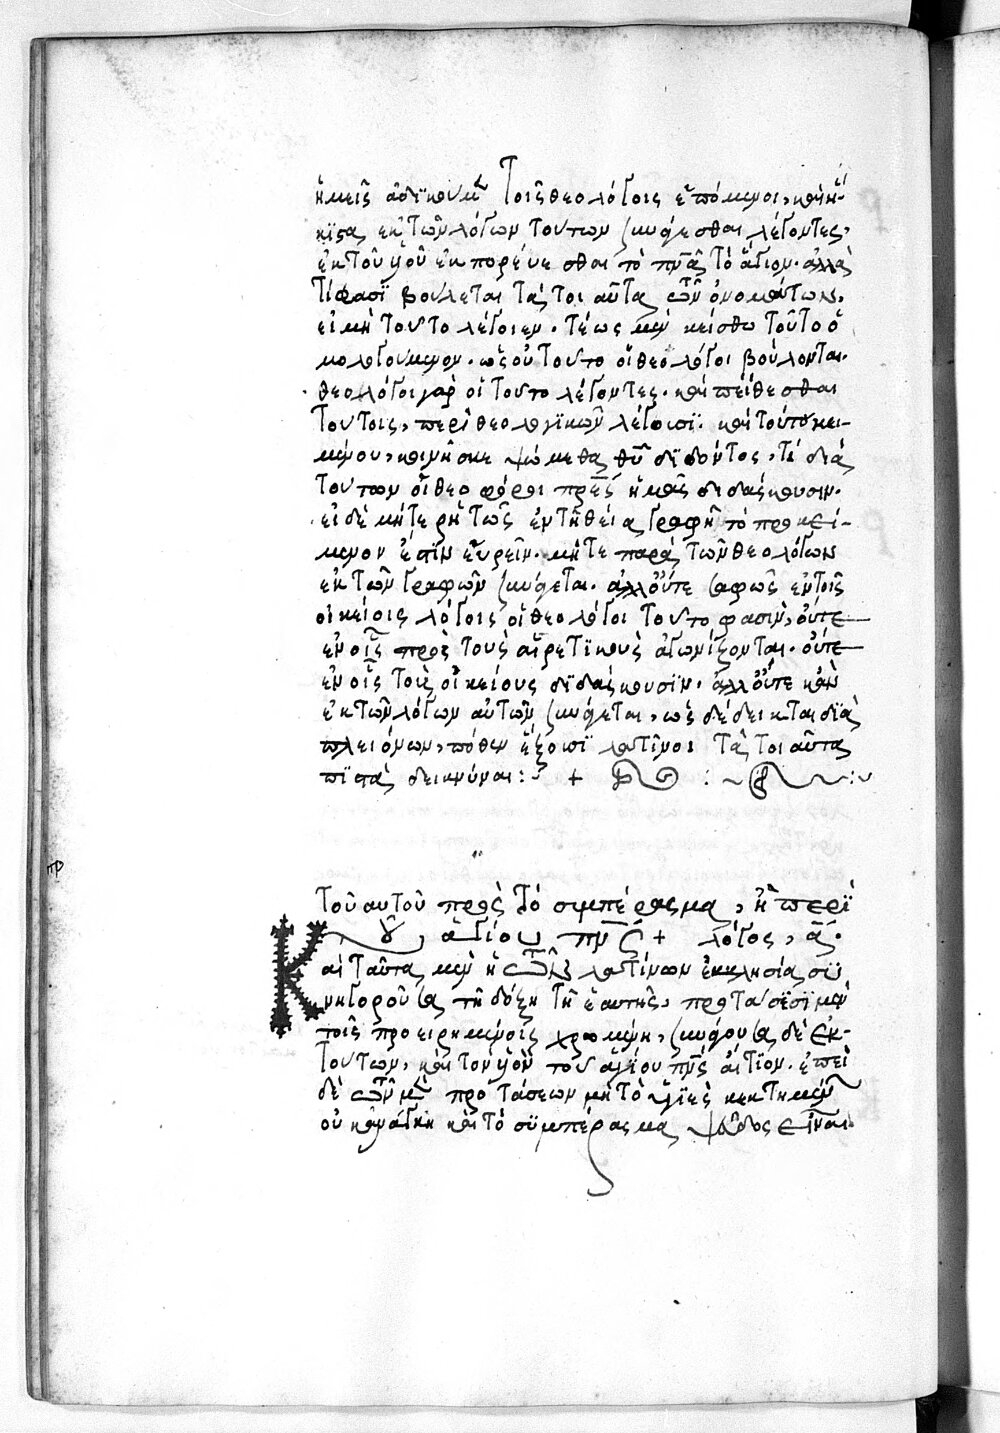 ἡμεῖς ἀδικοῦμεν τοῖς θεολόγοις ἑπόμενοι, καὶ ἥ-
κιστα ἐκ τῶν λόγων τούτων συνάγεσθαι λέγοντες,
ἐκ τοῦ υἱοῦ ἐκπορεύεσθαι τὸ πνᾶ τὸ ἅγιον. ἀλλὰ
τί φασι βούλεται ταῦτα τῶν ὀνομάτων,
εἰ μὴ τοῦτο λέγοιεν. τέως μὲν κείσθω τοῦτο ὁ
μολογούμενον. ὡς οὐ τοῦτο οἱ θεολόγοι βούλονται.
θεολόγοι γὰρ οἱ τοῦτο λέγοντες. καὶ πείθεσθαι
τούτοις, περὶ θεολογικῶν λέγουσι. καὶ τούτου κει-
μένου, θῦ διδόντος, τί διὰ
τούτων οἱ θεοφόροι πρες ἡμᾶς διδάσκουσιν.
εἰ δὲ μήτε ῥητῶς ἐν τῇ θείᾳ γραφῇ τὸ προκεί-
μενον ἐστὶν εὑρεῖν. μήτε παρὰ τῶν θεολόγων
ἐκ τῶν γραφῶν συνάγεται. ἀλλ' οὔτε σαφῶς ἐν τοῖς
οἰκείοις λόγοις οἱ θεολόγοι τοῦτο φασὶν, οὔτε
ἐν οἷς πρὸς τοὺς αἱρετικοὺς ἀγωνίζονται. οὔτε
ἐν οἷς τοὺς οἰκείους διδάσκουσιν. ἀλλ' οὔτε κἂν
ἐκ τῶν λόγων αὐτῶν συνάγεται, ὡς δέδεικται διὰ
πλειόνων, πόθεν ἕξουσι λατῖνοι ταῦτα
πιστὰ δεικνύναι :
τοῦ αὐτοῦ πρὸς τὸ συμπέρασμα, ἢ περὶ
τοῦ ἁγίου πνς + λόγος, α.
Καὶ ταῦτα μὲν ἡ τῶν λατίνων ἐκκλησία συ
νηγοροῦσα τῇ δόξῃ τῇ ἑαυτῆς, προτάσεσι μὲν
τοῖς προειρημένοις χρωμένη, συνάγουσα δὲ ἐκ
τούτων, καὶ τὸν υἱὸν τοῦ ἁγίου πνς αἴτιον. ἐπεὶ
δὲ τῶν μὲν προτάσεων μὴ τὸ ὑγιὲς κεκτημένων
οὐκ ἀνάγκη καὶ τὸ συμπέρασμα ψεῦδος εἶναι